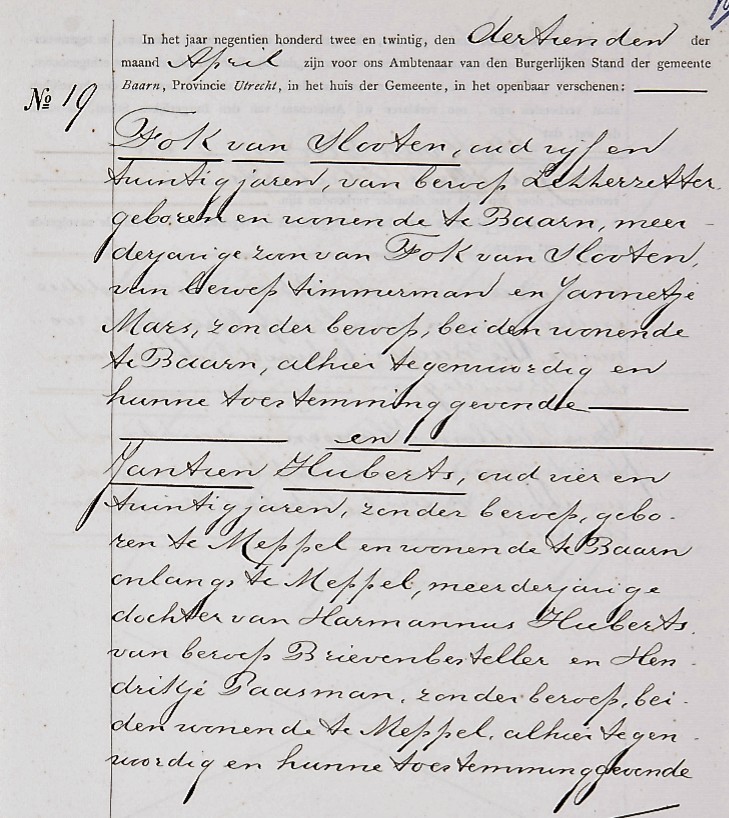 In het jaar negentien honderd twee en twintig, den dertienden der
maand April zijn voor ons Ambtenaar van den Burgerlijken Stand der gemeente
Baarn, Provincie Utrecht, in het huis der Gemeente, in het openbaar verschenen:
No 19
Fok van Slooten, oud vijf en
twintig jaren, van beroep Letterzetter,
geboren en wonende te Baarn, meer-
derjarige zoon van Fok van Slooten,
van beroep timmerman en Jannetje
Mars, zonder beroep, beiden wonende
te Baarn, alhier tegenwoordig en
hunne toestemming gevende
en
Jantien Huberts, oud vier en
twintig jaren, zonder beroep, gebo-
ren te Meppel en wonende te Baarn
onlangs te Meppel, meerderjarige
dochter van Harmannus Huberts,
van beroep Brievenbesteller en Hen-
drikje Paasman, zonder beroep, bei-
den wonende te Meppel, alhier tegen-
woordig en hunne toestemming gevende